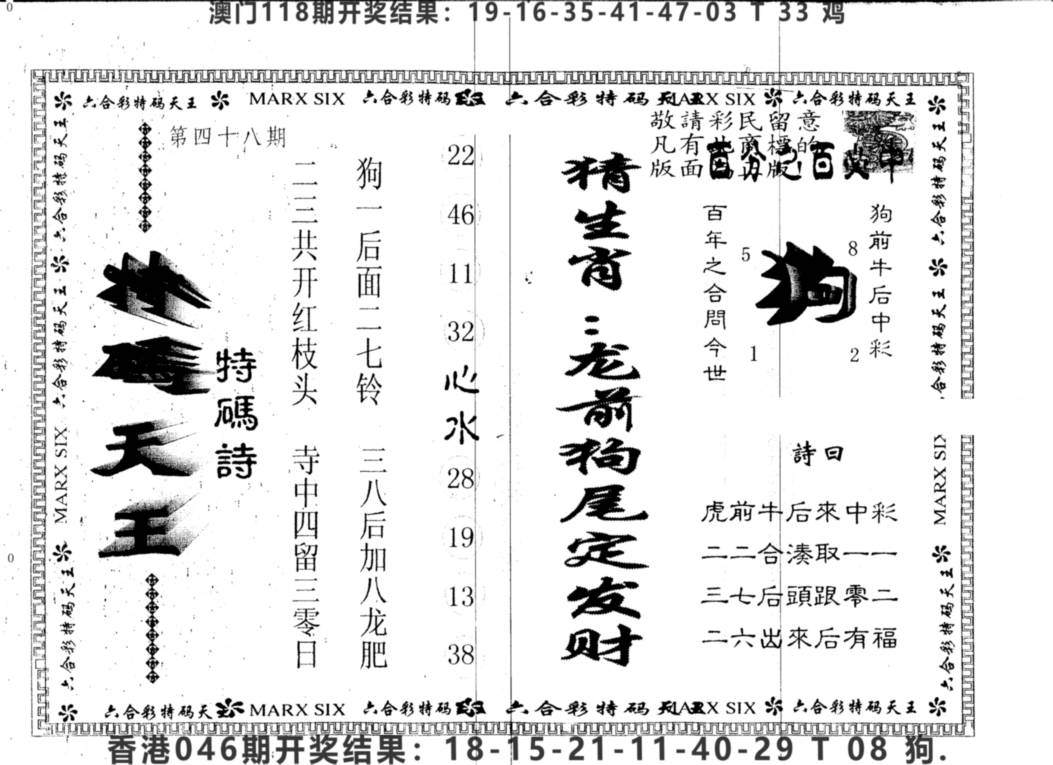 澳门118期开奖结果：19-16-35-41-47-03 T 33 鸡
六合彩特码天王 MARX SIX 六合彩特码 六合彩特码天王 MARX SIX 六合彩特码天王
敬請彩民留意
凡有 商標的
版面 版
百分之百 中
百年之合問今世
狗前牛后中彩
狗
5
8
1
2
詩曰
虎前牛后來中彩
二二合湊取一一
三七后頭跟零二
二六出來后有福
猜生肖：龙前狗尾定发财
22
46
11
32
心水
28
19
13
38
狗一后面二七铃 三八后加八龙肥
二三共开红枝头 寺中四留三零日
特碼詩
第四十八期
特碼天王
六合彩特码天王 六合彩特码天王 MARX SIX 六合彩特码天王
六合彩特码天王 六合彩特码天王 MARX SIX 六合彩特码天王
六合彩特码天王 MARX SIX 六合彩特码 六合彩特码天王 MARX SIX 六合彩特码天王
香港046期开奖结果：18-15-21-11-40-29 T 08 狗.